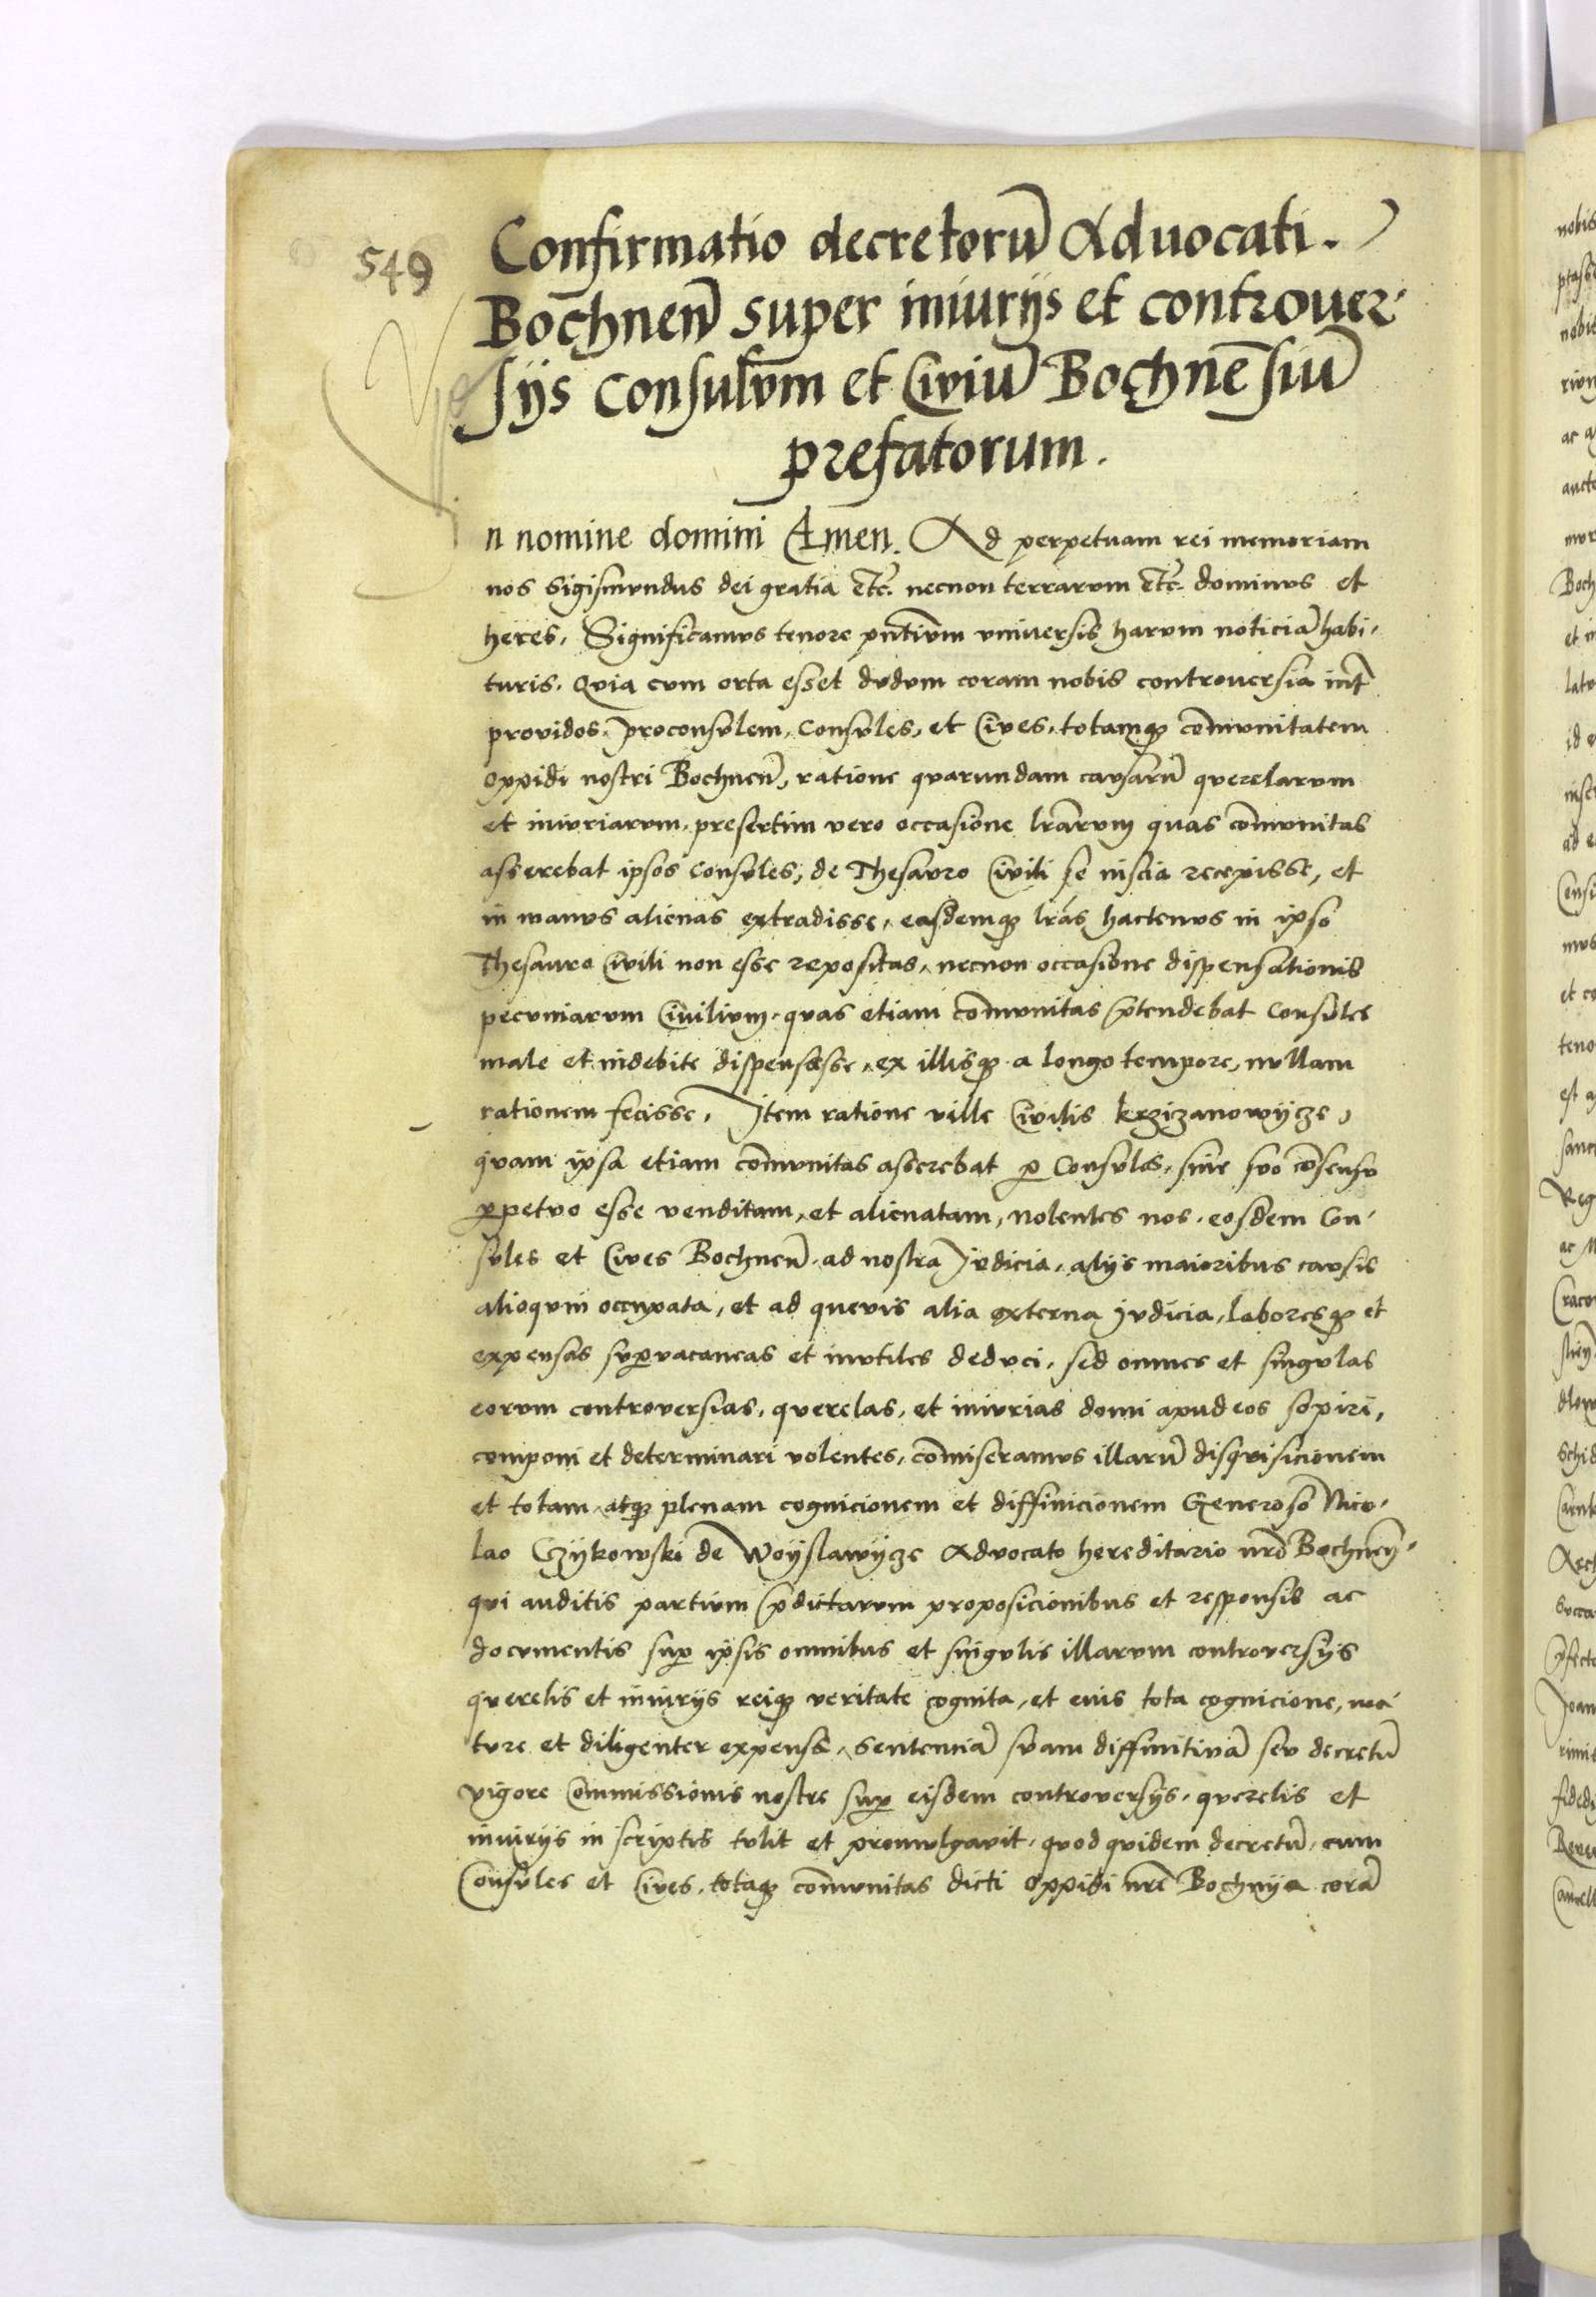 549
Confirmatio decretorū Aduocati.
Bochnen̄ super iniurijs et controuer-
sijs Consulum et Ciuiū Bochnēsiū
prefatorum.
n nomine domini Amen. Ad perpetuam rei memoriam
nos Sigismundus dei gratia etc̄. necnon terrarum etc̄. dominus et
heres, Significamus tenore pn̄tium vniuersis harum noticiā habi-
turis. Quia cum orta esset dudum coram nobis controuersia int̄
prouidos, proconsulem, Consules, et Ciues, totamqȝ com̄unitatem
oppidi nostri Bochnen̄, ratione quarundam causarū querelarum
et iniuriarum, presertim vero occasione lr̄arum quas com̄unitas
asserebat ipsos Consules, de Thesauro Ciuili se inscia recepisse, et
in manus alienas extradisse, easdemqȝ lr̄as hactenus in ipso
Thesauro Ciuili non esse repositas, necnon occasione dispensationis
pecuniarum Ciuilium, quas etiam com̄unitas p̄tendebat Consules
male et indebite dispensasse, ex illisqȝ a longo tempore, nullam
rationem fecisse, Item ratione ville Ciuilis krzizanowijcze,
quam ipsa etiam com̄unitas asserebat ꝑ Consules, sine suo cōsensu
ꝑpetuo esse venditam, et alienatam, Nolentes nos, eosdem Con-
sules et Ciues Bochnen̄. ad nostra Judicia, alijs maioribus causis
alioquin occupata, et ad queuis alia externa judicia, laboresqȝ et
expensas suꝑuacaneas et inutiles deduci, sed omnes et singulas
eorum controuersias, querelas, et iniurias domi apud eos sopiri,
componi et determinari volentes, com̄iseramus illarū disquisicionem
et totam, atqȝ plenam cognicionem et diffinicionem Generoso Nico-
lao Czijkowski de Woijslawijcze Aduocato hereditario nr̄o Bochnen̄.
qui auditis partium p̄dictarum proposicionibus et responsis ac
documentis suꝑ ipsis omnibus et singulis illarum controuersijs
querelis et iniurijs reiqȝ veritate cognita, et eius tota cognicione, ma-
ture et diligenter expense, Sentenciā suam diffinitiuā seu decretū
vigore Commissionis nostre suꝑ eisdem controuersijs, querelis et
iniurijs in scriptis tulit et promulgauit, quod quidem decretū, cum
Consules et Ciues, totaqȝ com̄unitas dicti Oppidi nr̄i Bochnija corā